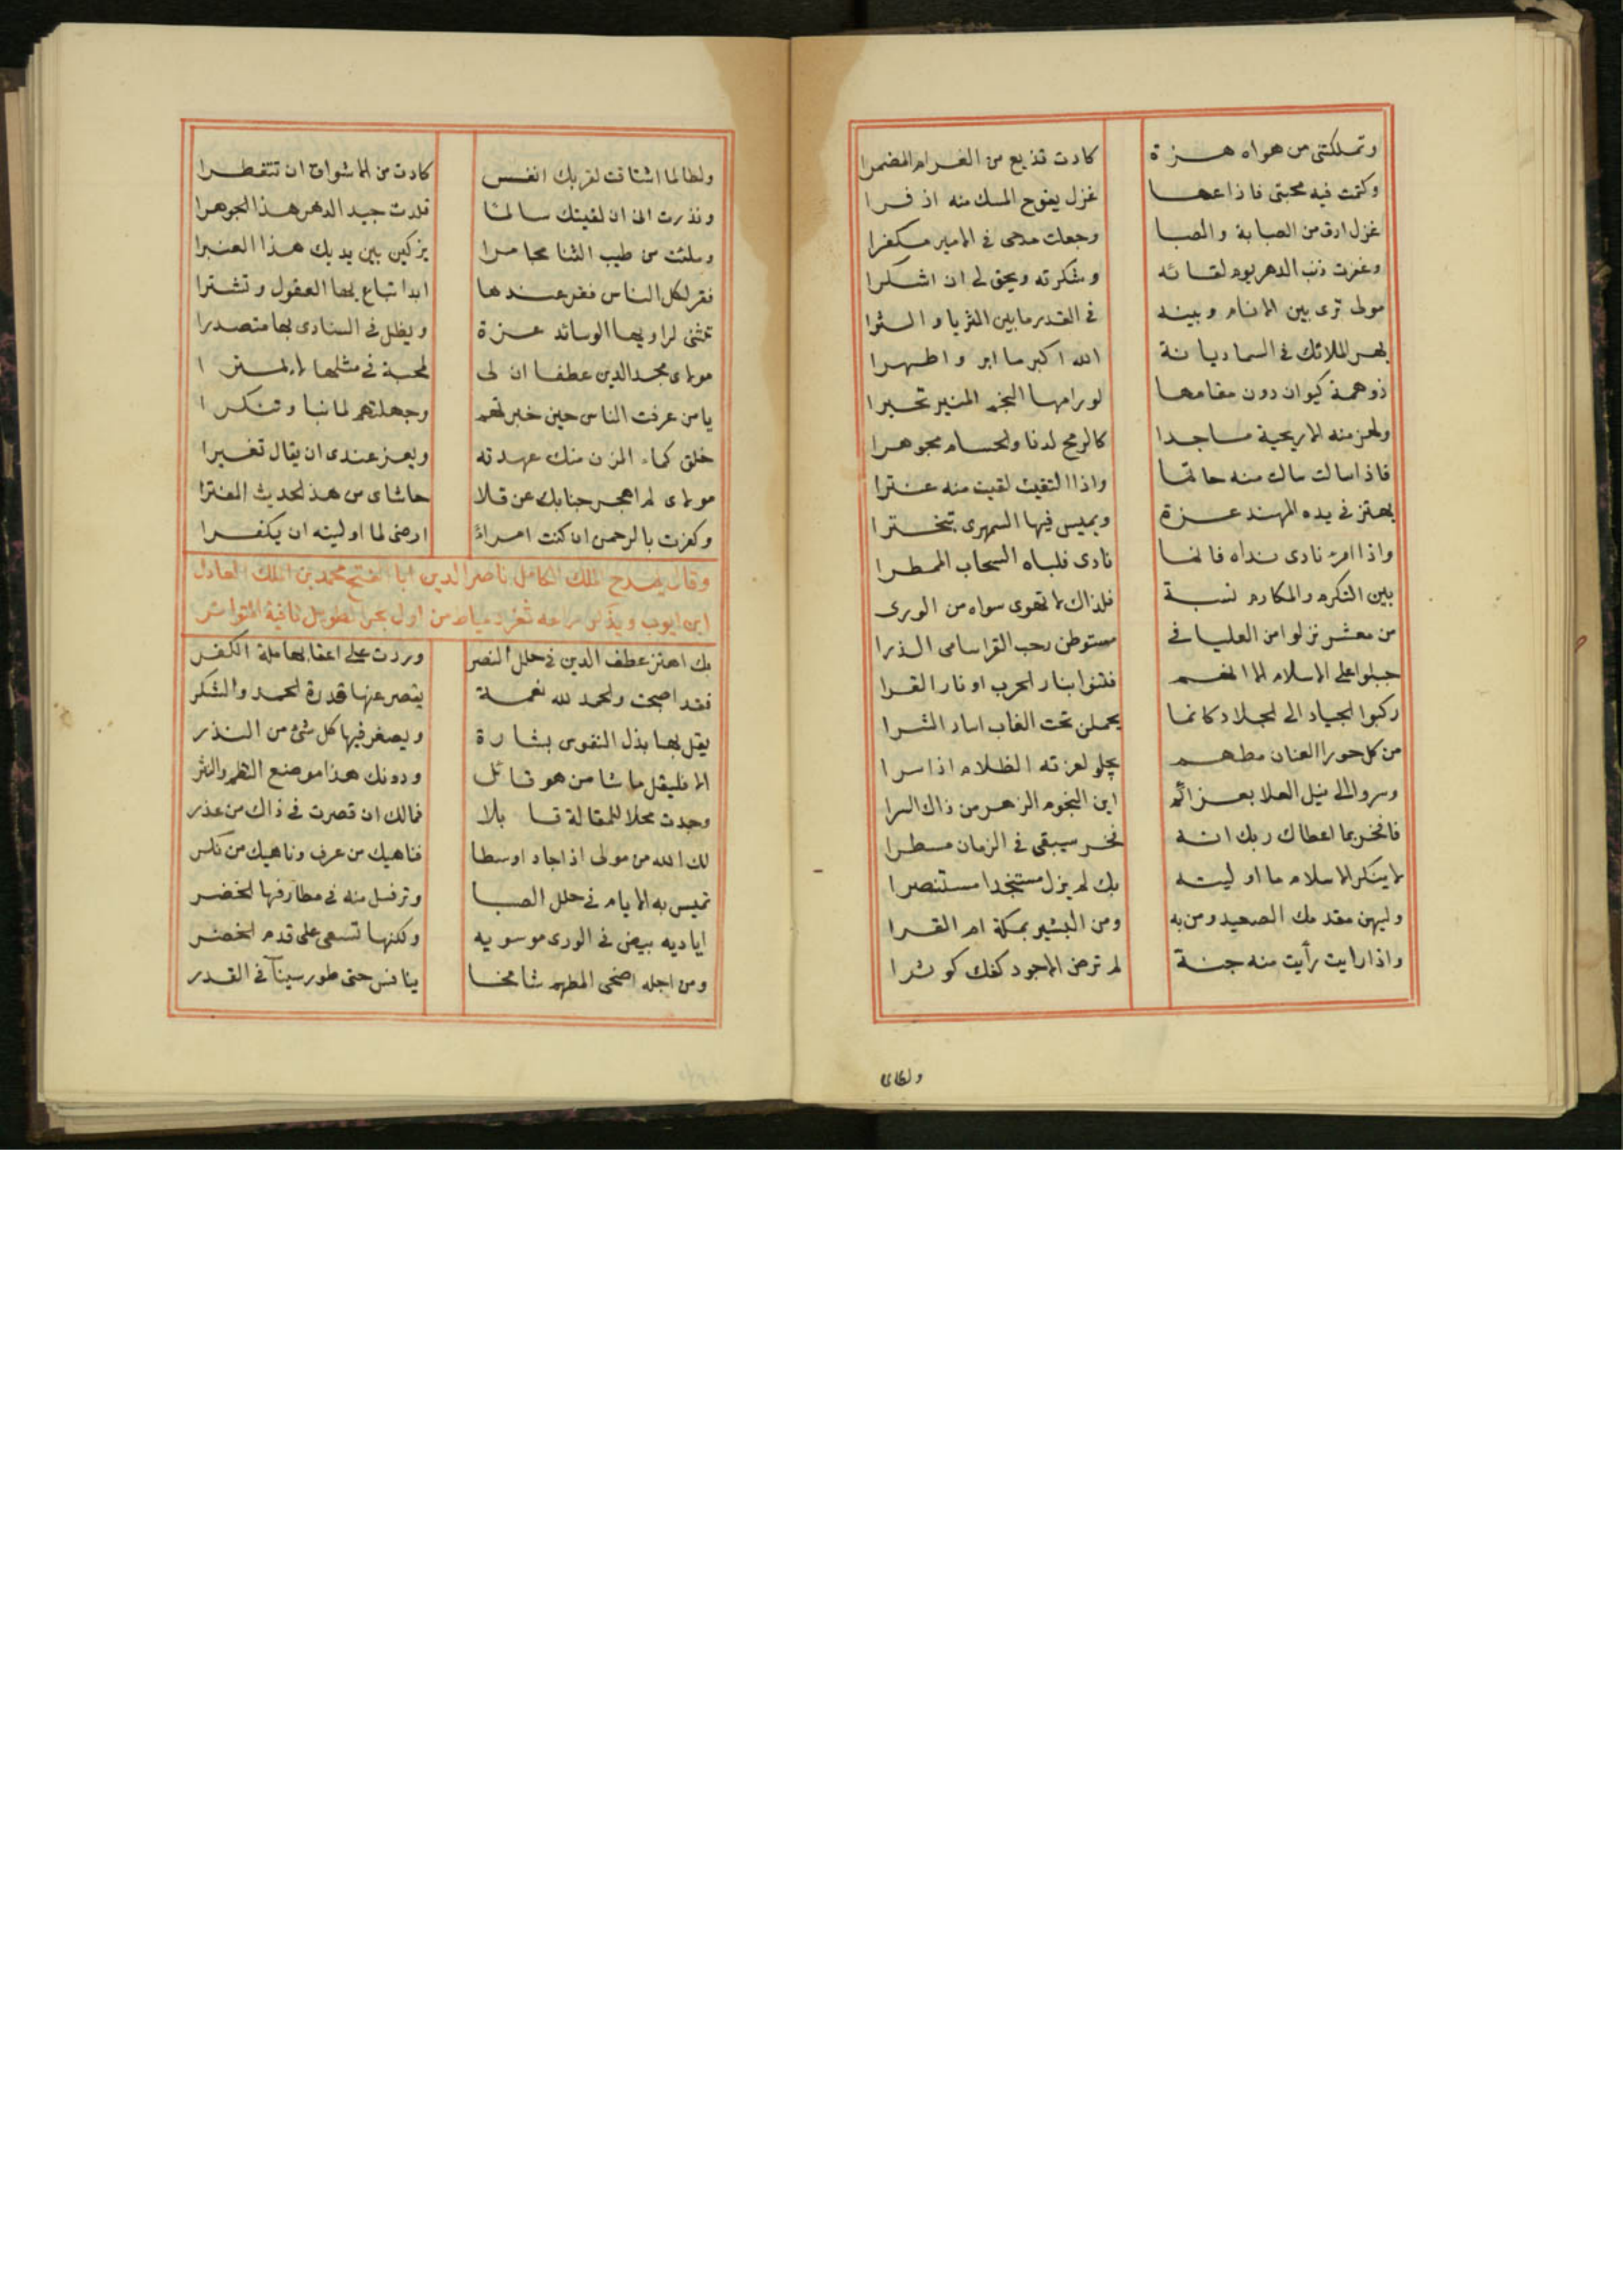 وتملكتنى من هواه هزة كادت تذيع من الغرام المضمرا
وكتمت فيه محبتى فاذاعها غزل يفوح المسك منه اذفرا
غزل ارق من الصبابة والصبا وجعلت مدحى فى الامير مكفرا
وغفرت ذنب الدهر يوم لقائه وشكرته ويحق لى ان اشكرا
مولى ترى بين الانام وبينه فى القدر ما بين الثريا والثرا
بهر الملائك فى السما ديانة الله اكبر ما ابر واطهرا
ذو همة كيوان دون مقامها لو رامها النجم المنير تحيرا
وتهز منه الاريحية ماجدا كالرمح لدنا والحسام مجوهرا
فاذا سالت سالت منه حاتما واذا التقيت لقيت منه عنترا
يهتز فى يده المهند عزة ويميس فيها السمهرى تبخترا
واذا امرؤ نادى نداه فانما نادى فلباه السحاب الممطرا
بين التكرم والمكارم نسبة فلذاك لا تهوى سواه من الورى
من معشر نزلوا من العليا فى مستوطن رحب القرا سامى الذرا
جبلوا على الاسلام الا انهم فتنوا بنار الحرب او نار القرا
ركبوا الجياد الى الجلاد كانما يحملن تحت الغاب اساد الشرا
من كل حوار العنان مطهم يجلو لعزته الظلام اذا سرا
وسروا الى نيل العلا بعزائم اين النجوم الزهر من ذاك السرا
فافخر بما اعطاك ربك انه فخر سيبقى فى الزمان مسطرا
لا ينكر الاسلام ما اوليته بك لم يزل مستنجدا مستنصرا
وليهن مقدمك الصعيد ومن به ومن البشير بمكة ام القرا
واذا رايت رأيت منه جنة لم ترض الا جود كفك كوثرا
ولطالما
ولطالما اشتاقت لقربك انفس كادت من الاشواق ان تتفطرا
ونذرت انى ان لقيتك سالما قلدت جيد الدهر هذا الجوهرا
وملئت من طيب الثنا مجامرا يزكين بين يديك هذا العنبرا
فقر لكل الناس فقر عندها ابدا تباع بها العقول وتشترا
تثنى لراويها الوسائد عزة ويظل فى النادى بها متصدرا
مولاى مجد الدين عطفا ان لى لمحبة فى مثلها لا يمترا
يا من عرفت الناس حين خبرتهم وجهلتهم لما نبا وتنكرا
خلق كماء المزن منك عهدته ويعز عندى ان يقال تغيرا
مولاى لم اهجر جنابك عن قلا حاشاى من هذا الحديث المفترا
وكفرت بالرحمن ان كنت امراءً ارضى لما اوليته ان يكفرا
وقال يمدح الملك الكامل ناصر الدين ابا الفتح محمد بن الملك العادل
ابن ايوب ويذكر ثغر دمياط من اول بحر الطويل قافية المتواتر
بك اهتز عطف الدين فى حلل النصر وردت على اعقابها ملة الكفر
فقد اصبحت والحمد لله نعمة يقصر عنها قدرة الحمد والشكر
يقل بها بذل النفوس بشارة ويصغر فيها كل شئ من النذر
الا فليقل ما شا من هو قائل ودونك هذا موضع النظم والنثر
وجدت محلا للمقالة قابلا فمالك ان قصرت فى ذاك من عذر
لك الله من مولى اذا جاد اوسطا فناهيك من عرف وناهيك من نكر
تميس به الايام فى حلل الصبا وترفل منه فى مطارفها الخضر
اياديه بيض فى الورى موسويه ولكنها تسعى على قدم الخضر
ومن اجله اضحى المطهم شامخا ينافس حتى طور سينآ فى القدر